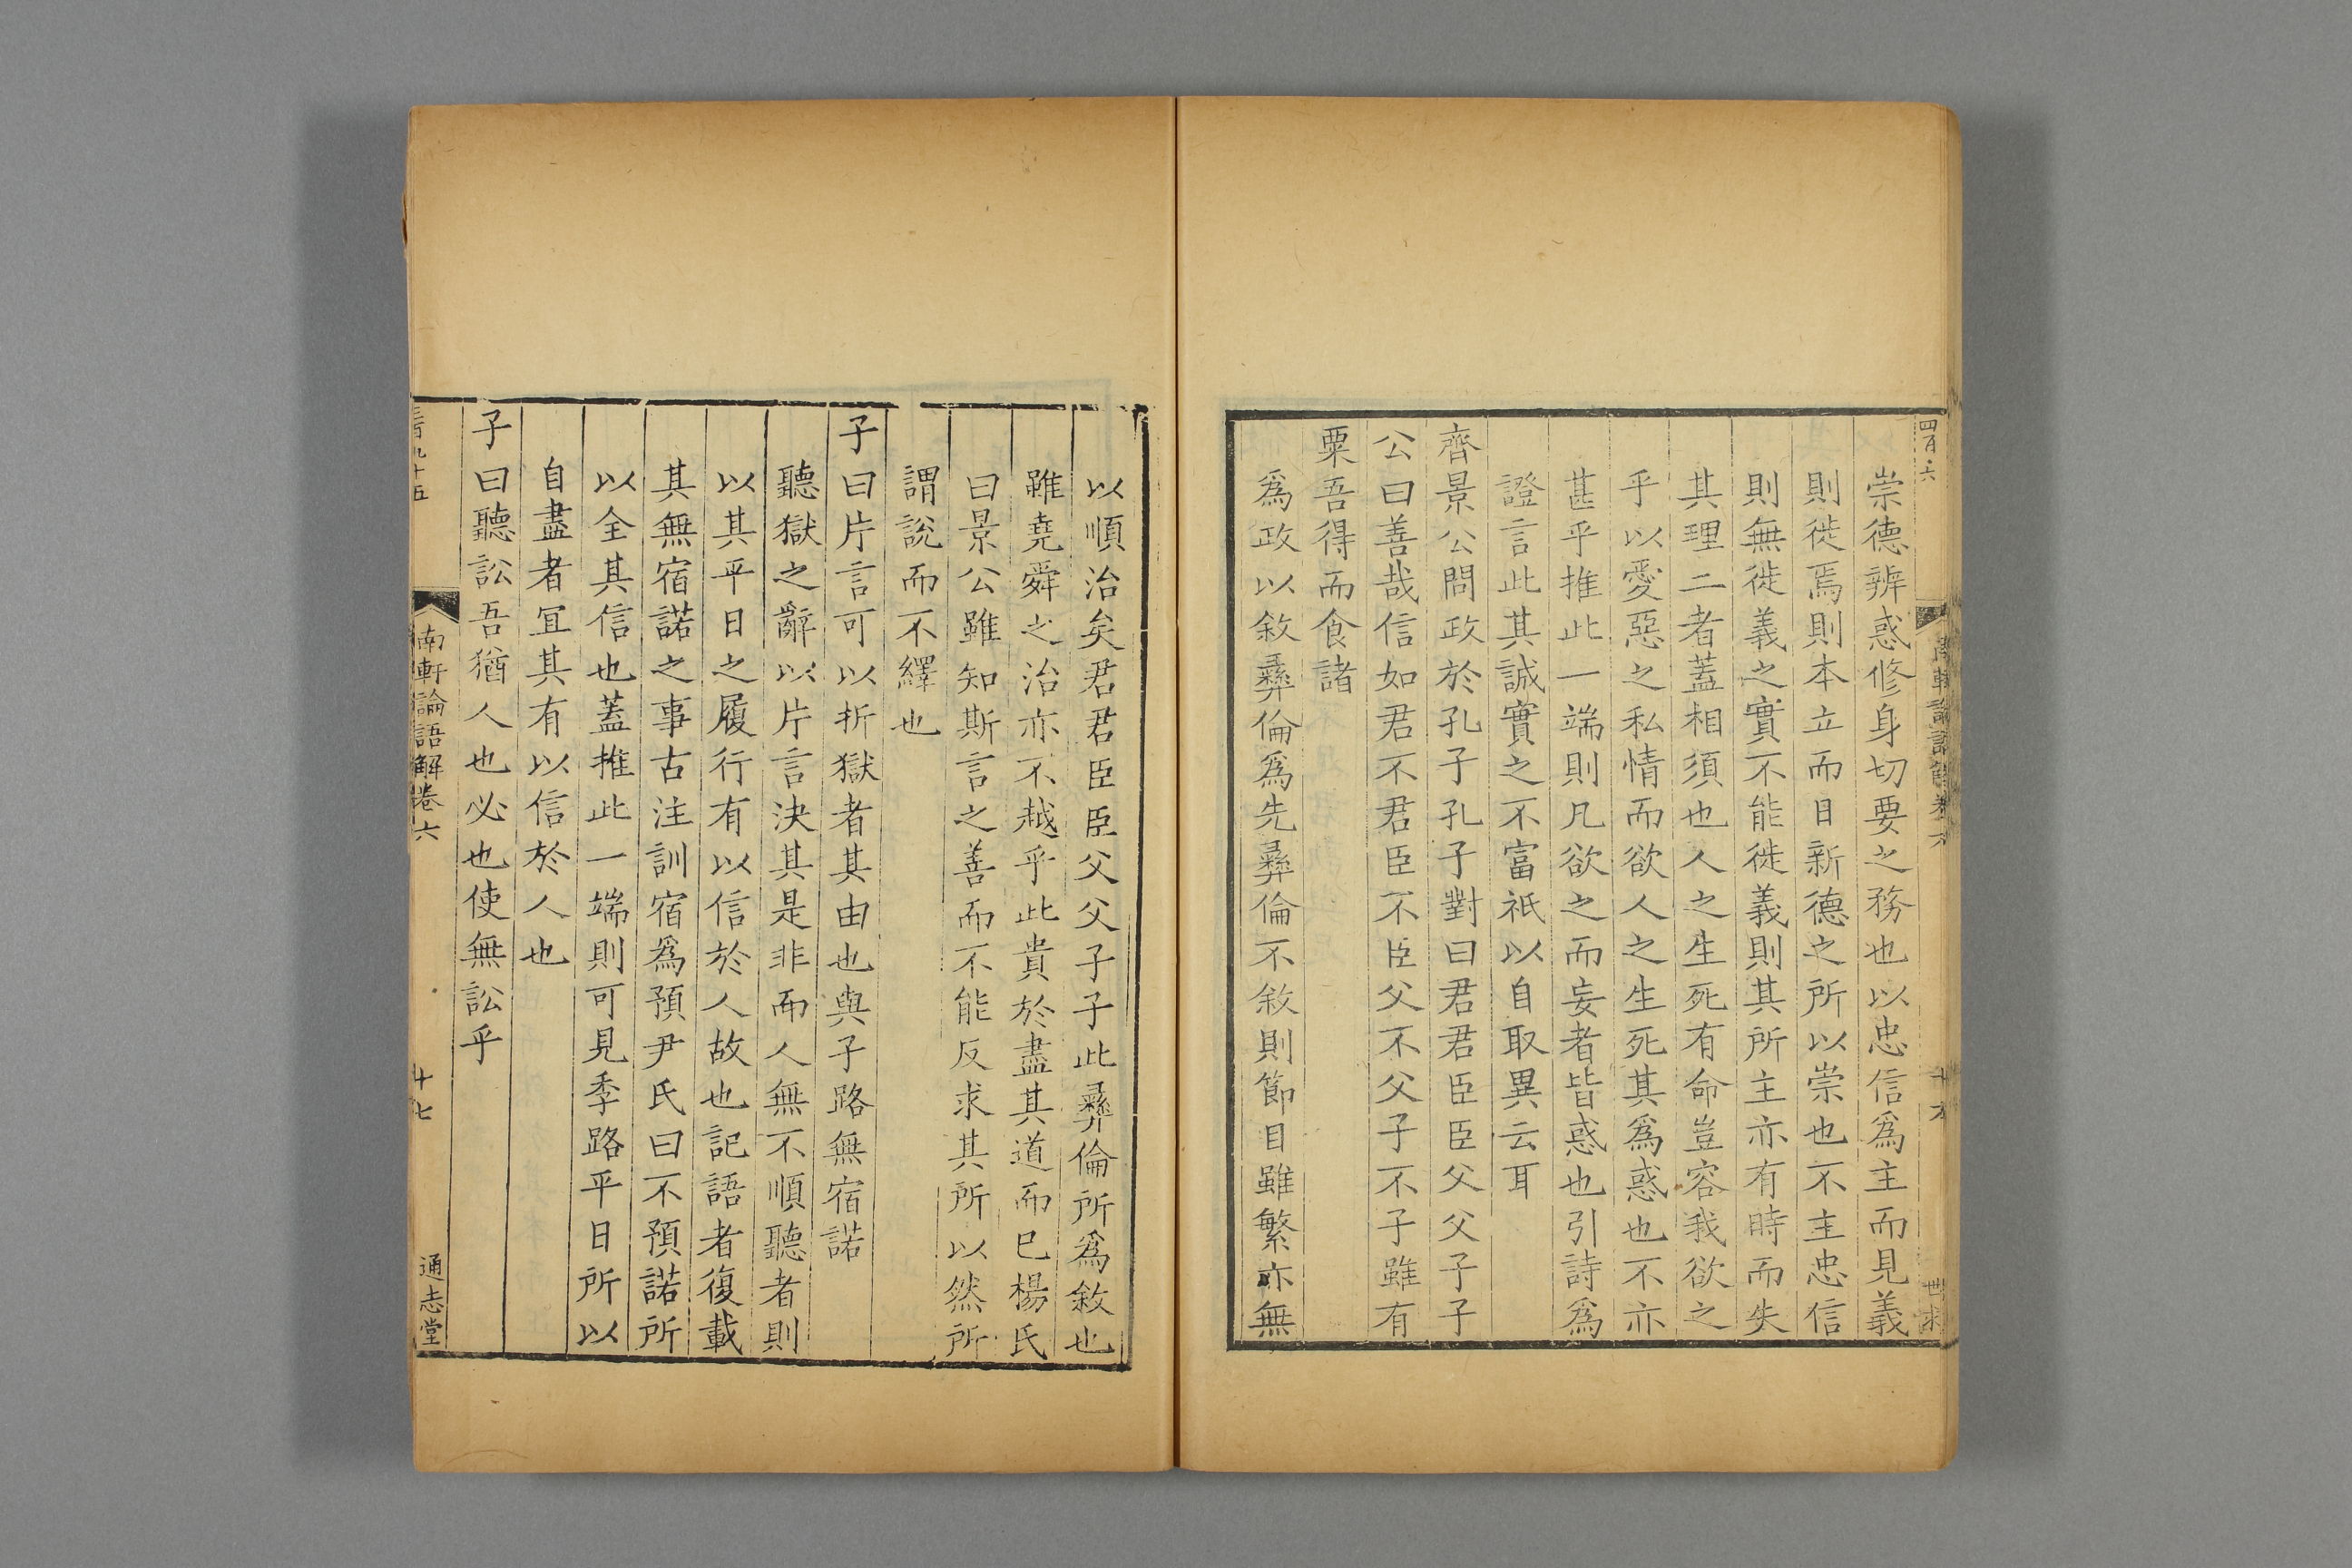 四百六
南軒論語解卷六
十六
崇德辨惑修身切要之務也以忠信爲主而見義
則徙焉則本立而日新德之所以崇也不主忠信
則無徙義之實不能徙義則其所主亦有時而失
其理二者蓋相須也人之生死有命豈容我欲之
乎以愛惡之私情而欲人之生死其爲惑也不亦
甚乎推此一端則凡欲之而妄者皆惑也引詩爲
證言此其誠實之不富祇以自取異云耳
齊景公問政於孔子孔子對曰君君臣臣父父子子
公曰善哉信如君不君臣不臣父不父子不子雖有
粟吾得而食諸
爲政以敘彝倫爲先彝倫不敘則節目雖繁亦無
以順治矣君君臣臣父父子子此彝倫所爲敘也
雖堯舜之治亦不越乎此貴於盡其道而已楊氏
曰景公雖知斯言之善而不能反求其所以然所
謂說而不繹也
子曰片言可以折獄者其由也與子路無宿諾
聽獄之辭以片言決其是非而人無不順聽者則
以其平日之履行有以信於人故也記語者復載
其無宿諾之事古注訓宿爲預尹氏曰不預諾所
以全其信也蓋推此一端則可見季路平日所以
自盡者冝其有以信於人也
子曰聽訟吾猶人也必也使無訟乎
三百九十五
南軒論語解卷六
十七
通志堂